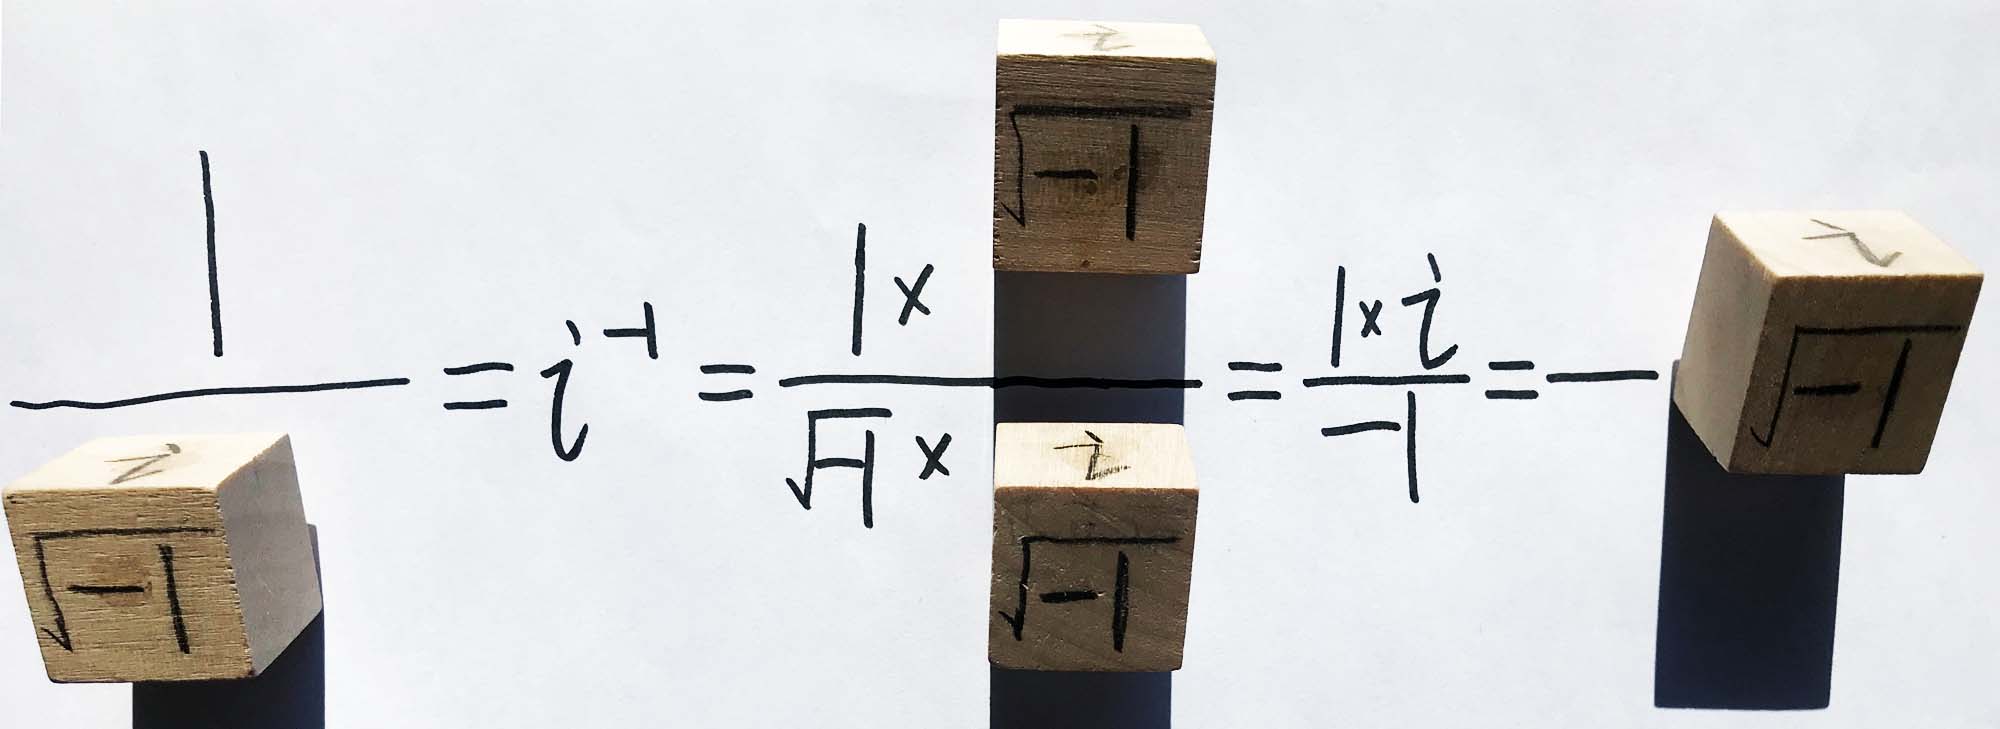 1/√-1 = i⁻¹ = 1×√-1/√-1×√-1 = 1×i/-1 = -√-1
i
i
i
i